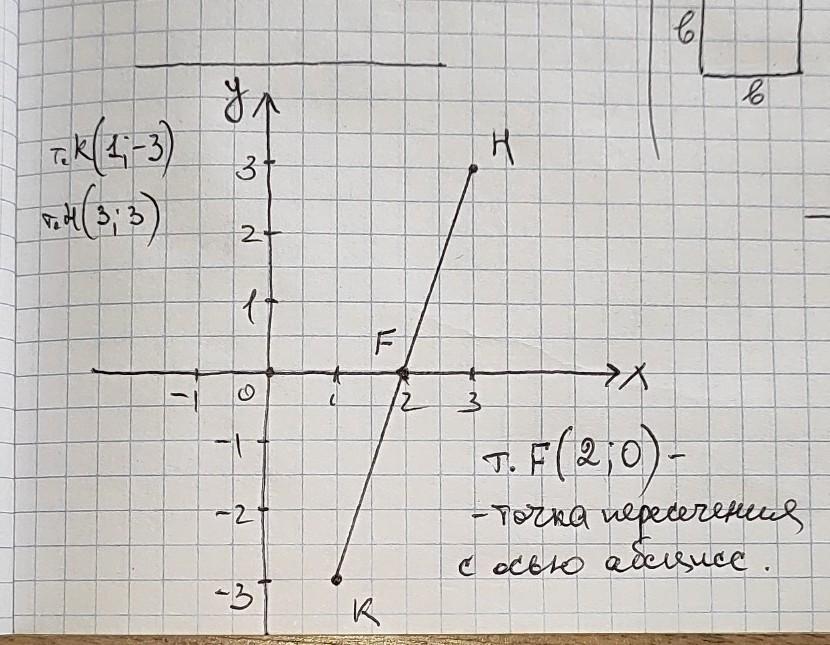 в
в
y
т. K(1; -3)
H
3
т. H(3; 3)
2
1
F
-1 0 1 2 3 X
-1
т. F(2; 0) -
-2
- точка пересечения
с осью абсцисс.
-3
K